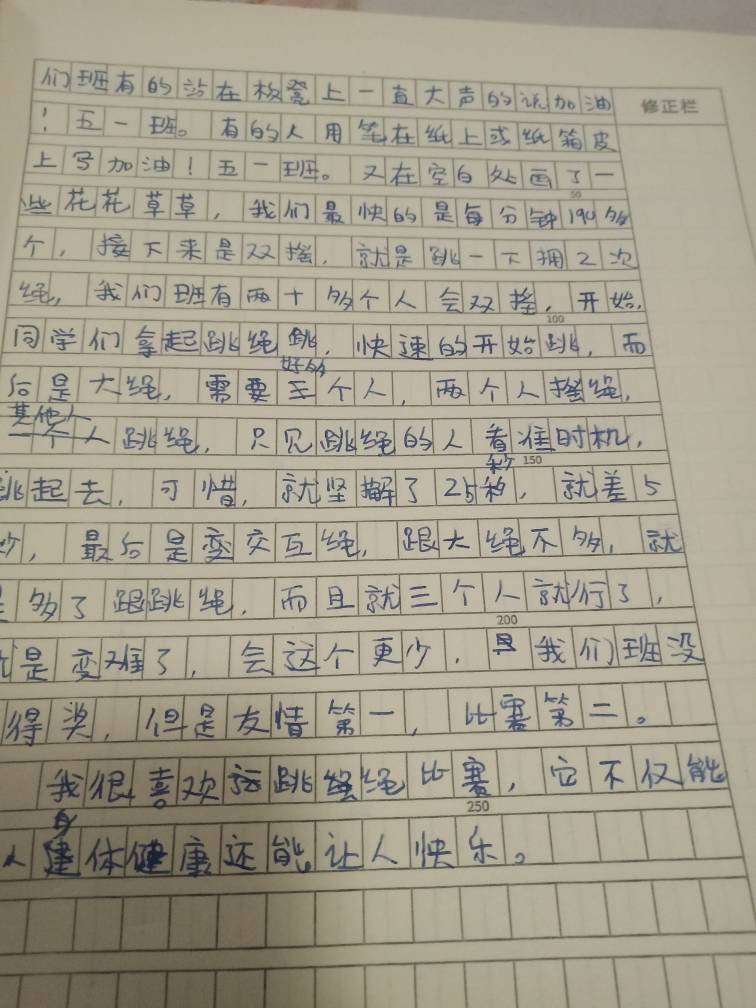 们班有的站在板凳上一直大声的说加油
修正栏
！五一班。有的人用笔在纸上或纸箱皮
上写加油！五一班。又在空白处画了一
50
些花花草草，我们最快的是每分钟190多
个，接下来是双摇，就是跳一下拥2次
绳，我们班有两十多个人会双摇，开始，
100
同学们拿起跳绳跳，快速的开始跳，而
好多
后是大绳，需要三个人，两个人摇绳，
其他人
一个人跳绳，只见跳绳的人看准时机，
秒 150
跳起去，可惜，就坚了25秒，就差5
秒，最后是变交互绳，跟大绳不多，就
是多了跟跳绳，而且就三个人就行了，
200
就是变难了，会这个更少，我们班没
得奖，但是友情第一，比赛第二。
我很喜欢这跳绳绳比赛，它不仅能
250
身
人建体健康还能让人快乐。